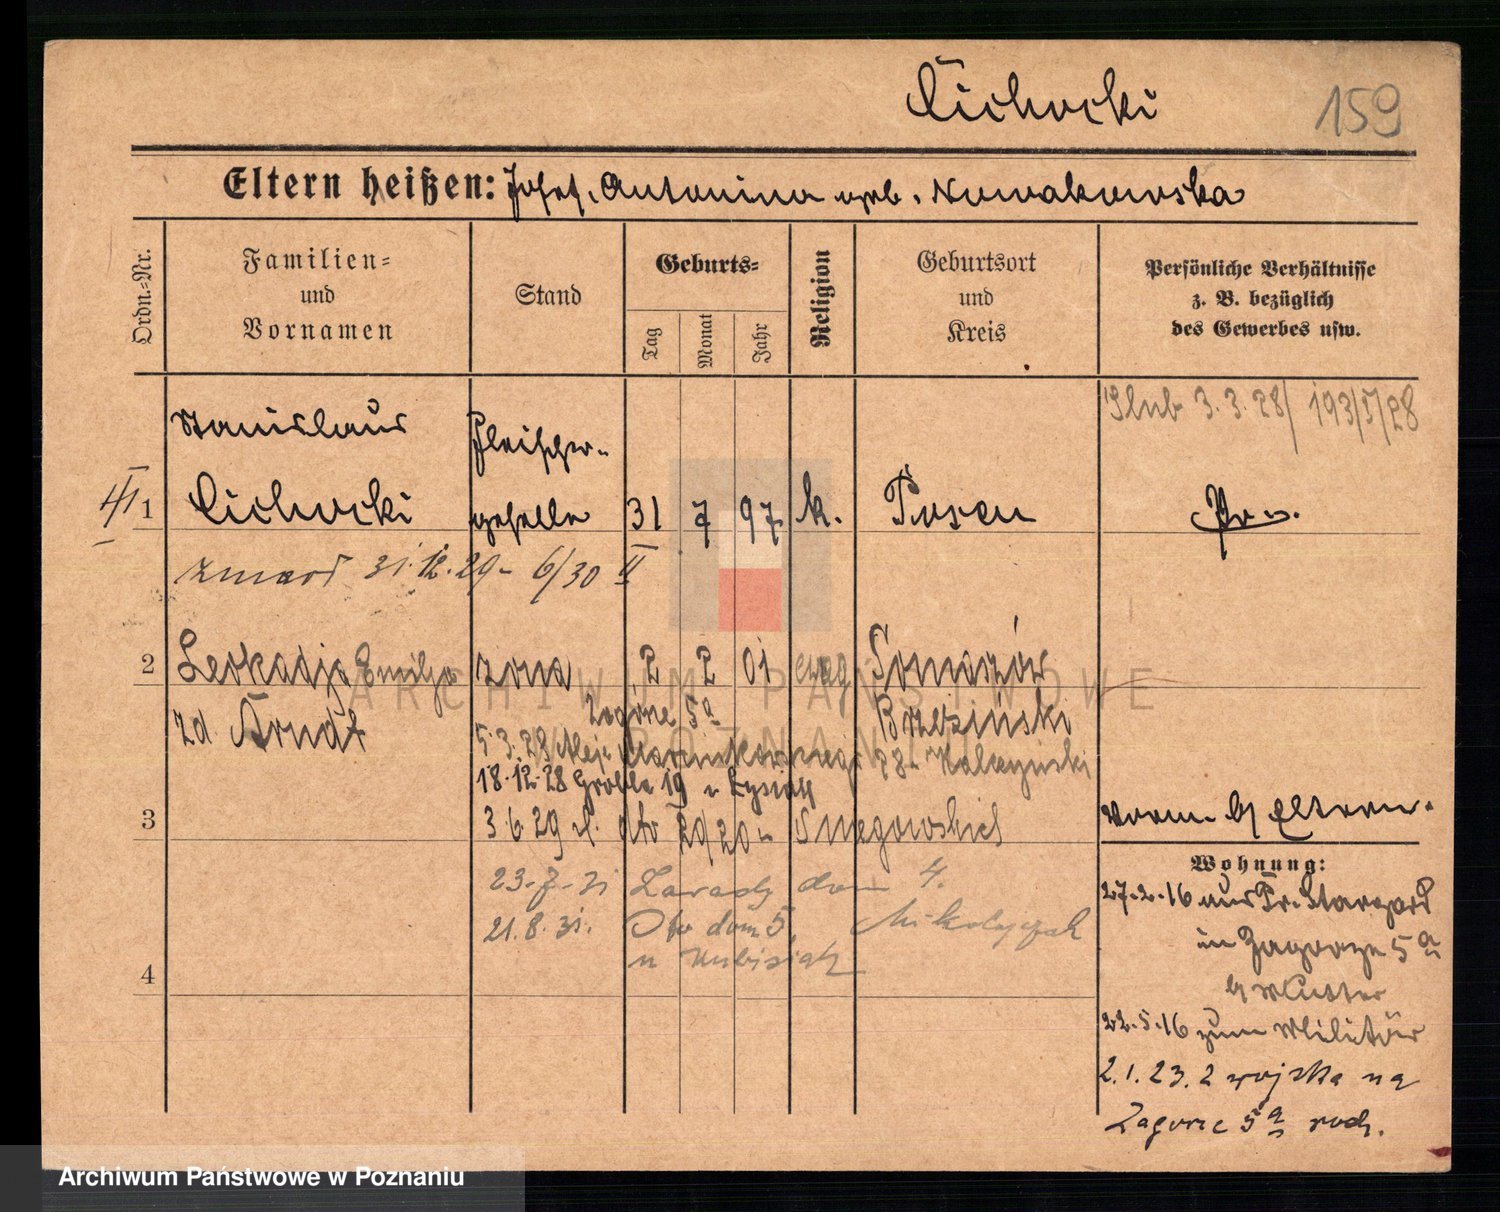 Cichocki 159
Eltern heißen: Josef, Antonina geb. Nowakowska
Ordn.-Nr.
Familien-
und
Vornamen
Stand
Geburts-
Tag
Monat
Jahr
Religion
Geburtsort
und
Kreis
Persönliche Verhältnisse
z. B. bezüglich
des Gewerbes usw.
Ślub 3.3.28/ 193/5/28
Stanislaus Fleischer-
1 Cichocki geselle 31 7 97 k. Posen Pr.
zmarł 31.12.29 - 6/30 II
2 Leokadja Emilja żona 2 2 01 ewag Tomaszów
zd Arndt Brzeziński
Zagórze 5a
5.3.28 Aleje Marcinkowskiego
18.12.28 Grobla 19
3 3.6.29 dto 29/20
vorm. b/ Eltern.
Wohnung:
23-7-31 Zawady dom 4.
27.2.16 aus Pr. Stargard
21.8.31. Oto dom 5, Mikołajczak
in Zagorze 5a
u Kubisiak
4
b/ Mutter
22.5.16 zum Militär
2.1.23. z wojska na
Zagorze 5a rodz.
ARCHIWUM PAŃSTWOWE
W POZNANIU
Archiwum Państwowe w Poznaniu